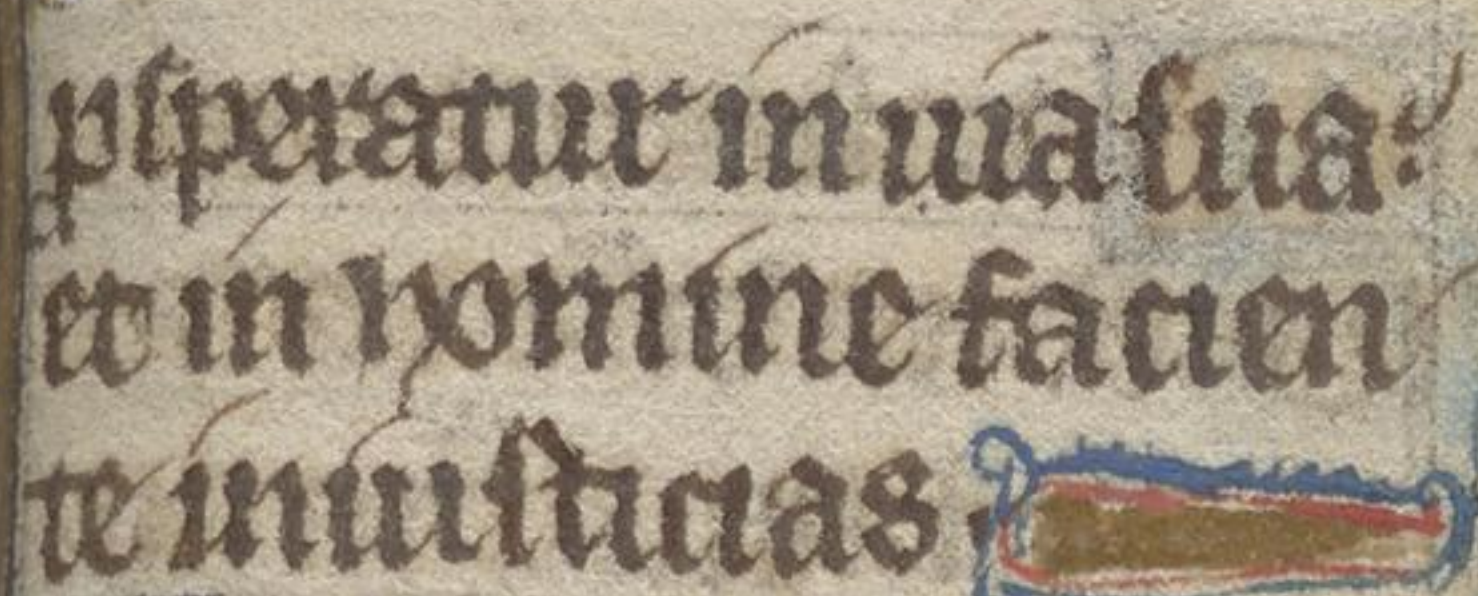 ꝓsperatur in uia sua:
et in homine facien
te iniusticias.